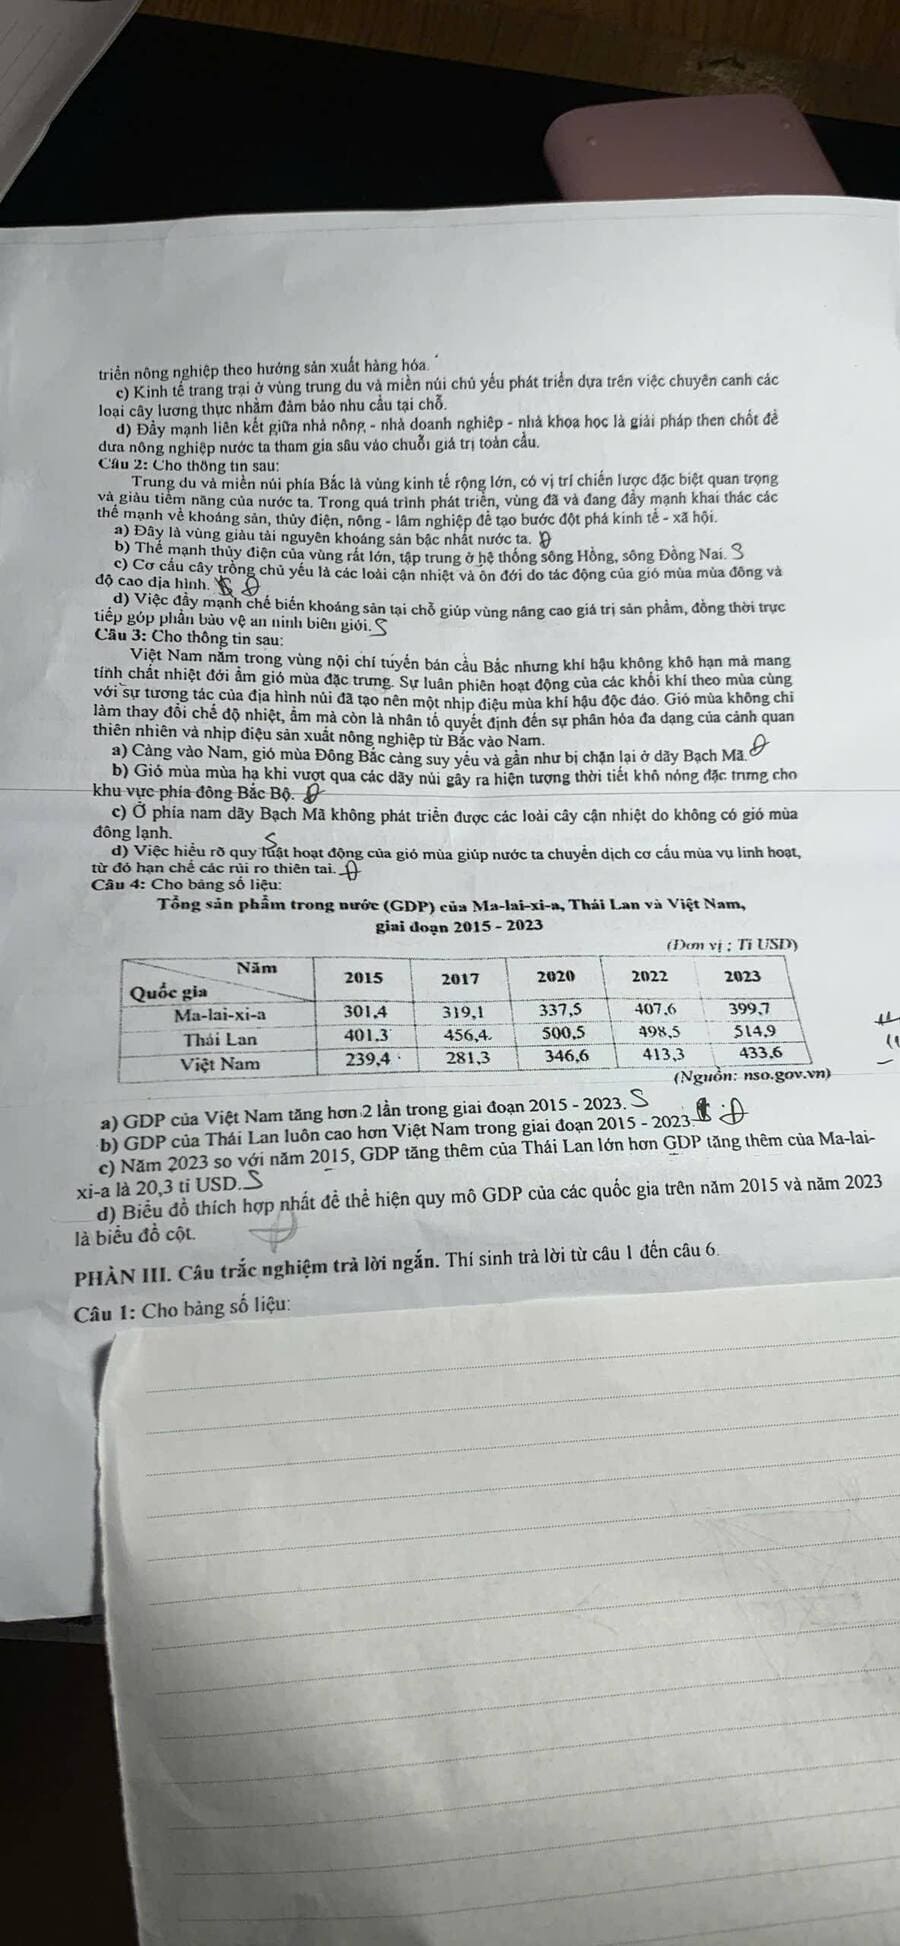 triển nông nghiệp theo hướng sản xuất hàng hóa.
c) Kinh tế trang trại ở vùng trung du và miền núi chủ yếu phát triển dựa trên việc chuyên canh các
loại cây lương thực nhằm đảm bảo nhu cầu tại chỗ.
d) Đẩy mạnh liên kết giữa nhà nông - nhà doanh nghiệp - nhà khoa học là giải pháp then chốt để
đưa nông nghiệp nước ta tham gia sâu vào chuỗi giá trị toàn cầu.
Câu 2: Cho thông tin sau:
Trung du và miền núi phía Bắc là vùng kinh tế rộng lớn, có vị trí chiến lược đặc biệt quan trọng
và giàu tiềm năng của nước ta. Trong quá trình phát triển, vùng đã và đang đẩy mạnh khai thác các
thế mạnh về khoáng sản, thủy điện, nông - lâm nghiệp để tạo bước đột phá kinh tế - xã hội.
a) Đây là vùng giàu tài nguyên khoáng sản bậc nhất nước ta. Đ
b) Thế mạnh thủy điện của vùng rất lớn, tập trung ở hệ thống sông Hồng, sông Đồng Nai. S
c) Cơ cấu cây trồng chủ yếu là các loài cận nhiệt và ôn đới do tác động của gió mùa mùa đông và
độ cao địa hình. Đ
d) Việc đẩy mạnh chế biến khoáng sản tại chỗ giúp vùng nâng cao giá trị sản phẩm, đồng thời trực
tiếp góp phần bảo vệ an ninh biên giới. S
Câu 3: Cho thông tin sau:
Việt Nam nằm trong vùng nội chí tuyến bán cầu Bắc nhưng khí hậu không khô hạn mà mang
tính chất nhiệt đới ẩm gió mùa đặc trưng. Sự luân phiên hoạt động của các khối khí theo mùa cùng
với sự tương tác của địa hình núi đã tạo nên một nhịp điệu mùa khí hậu độc đáo. Gió mùa không chỉ
làm thay đổi chế độ nhiệt, ẩm mà còn là nhân tố quyết định đến sự phân hóa đa dạng của cảnh quan
thiên nhiên và nhịp điệu sản xuất nông nghiệp từ Bắc vào Nam.
a) Càng vào Nam, gió mùa Đông Bắc càng suy yếu và gần như bị chặn lại ở dãy Bạch Mã. Đ
b) Gió mùa mùa hạ khi vượt qua các dãy núi gây ra hiện tượng thời tiết khô nóng đặc trưng cho
khu vực phía đông Bắc Bộ. Đ
c) Ở phía nam dãy Bạch Mã không phát triển được các loài cây cận nhiệt do không có gió mùa
đông lạnh. S
d) Việc hiểu rõ quy luật hoạt động của gió mùa giúp nước ta chuyển dịch cơ cấu mùa vụ linh hoạt,
từ đó hạn chế các rủi ro thiên tai. Đ
Câu 4: Cho bảng số liệu:
Tổng sản phẩm trong nước (GDP) của Ma-lai-xi-a, Thái Lan và Việt Nam,
giai đoạn 2015 - 2023
(Đơn vị ; Tỉ USD)
Năm
Quốc gia 2015 2017 2020 2022 2023
Ma-lai-xi-a 301,4 319,1 337,5 407,6 399,7
Thái Lan 401,3 456,4 500,5 498,5 514,9
Việt Nam 239,4 281,3 346,6 413,3 433,6
(Nguồn: nso.gov.vn)
a) GDP của Việt Nam tăng hơn 2 lần trong giai đoạn 2015 - 2023. S
b) GDP của Thái Lan luôn cao hơn Việt Nam trong giai đoạn 2015 - 2023. Đ
c) Năm 2023 so với năm 2015, GDP tăng thêm của Thái Lan lớn hơn GDP tăng thêm của Ma-lai-
xi-a là 20,3 tỉ USD. S
d) Biểu đồ thích hợp nhất để thể hiện quy mô GDP của các quốc gia trên năm 2015 và năm 2023
là biểu đồ cột. Đ
PHẦN III. Câu trắc nghiệm trả lời ngắn. Thí sinh trả lời từ câu 1 đến câu 6.
Câu 1: Cho bảng số liệu: